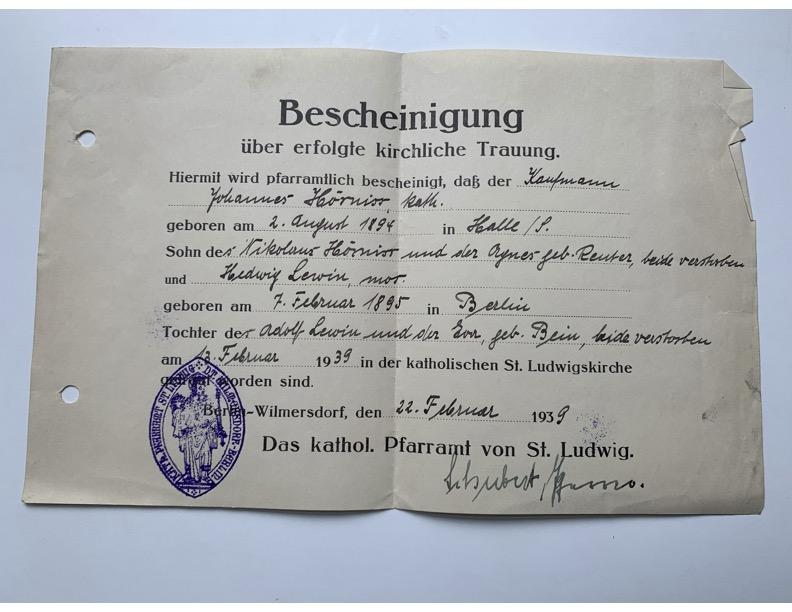 Bescheinigung
über erfolgte kirchliche Trauung.
Hiermit wird pfarramtlich bescheinigt, daß der Kaufmann
Johannes kath.
geboren am 2. August 1894 in Halle /S.
Sohn des Nikolaus und der Agnes geb. Reuter, beide verstorben
und Hedwig Lewin, mos.
geboren am 7. Februar 1895 in Berlin
Tochter des Adolf Lewin und der geb. Bein, beide verstorben
am Februar 1939 in der katholischen St. Ludwigskirche
getraut worden sind.
Berlin-Wilmersdorf, den 22. Februar 1939
Das kathol. Pfarramt von St. Ludwig.
Schubert